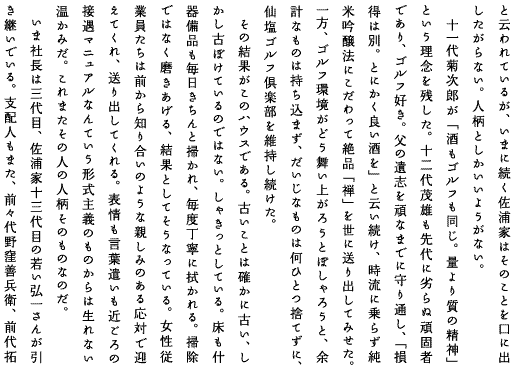 と云われているが、いまに続く佐浦家はそのことを口に出
したがらない。人柄としかいいようがない。
十一代菊次郎が「酒もゴルフも同じ。量より質の精神」
という理念を残した。十二代茂雄も先代に劣らぬ頑固者
であり、ゴルフ好き。父の遺志を頑なまでに守り通し、「損
得は別。とにかく良い酒を」と云い続け、時流に乗らず純
米吟醸法にこだわって絶品「禅」を世に送り出してみせた。
一方、ゴルフ環境がどう舞い上がろうとぽしゃろうと、余
計なものは持ち込まず、だいじなものは何ひとつ捨てずに、
仙塩ゴルフ倶楽部を維持し続けた。
その結果がこのハウスである。古いことは確かに古い、し
かし古ぼけているのではない。しゃきっとしている。床も什
器備品も毎日きちんと掃かれ、毎度丁寧に拭かれる。掃除
ではなく磨きあげる、結果としてそうなっている。女性従
業員たちは前から知り合いのような親しみのある応対で迎
えてくれ、送り出してくれる。表情も言葉遣いも近ごろの
接遇マニュアルなんていう形式主義のものからは生れない
温かみだ。これまたその人の人柄そのものなのだ。
いま社長は三代目、佐浦家十三代目の若い弘一さんが引
き継いでいる。支配人もまた、前々代野窪善兵衛、前代拓